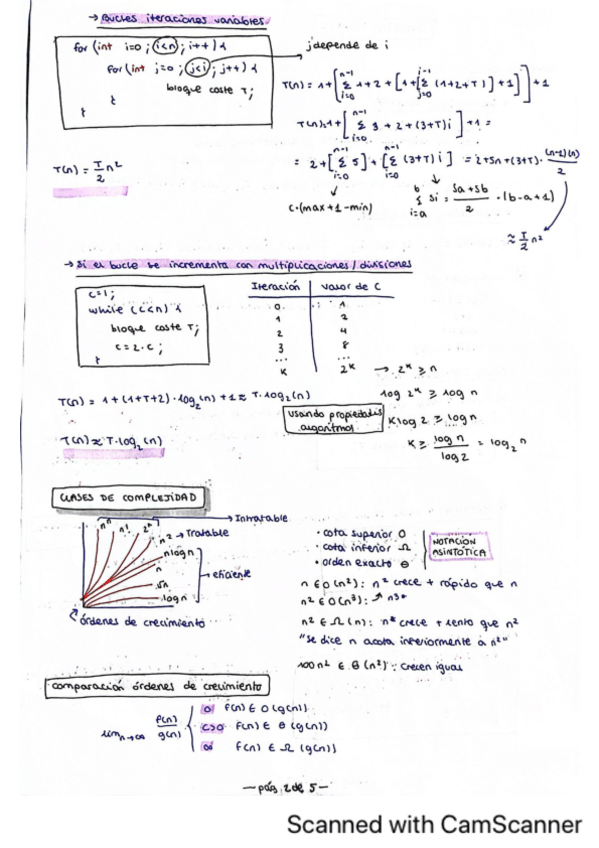 → Bucles iteraciones variables.
for (int i=0 ; i<n ; i++) {
for (int j=0 ; j<i ; j++) {
bloque coste T;
}
}
j depende de i
T(n) = 1+[Σ_{i=0}^{n-1} 1+2+[1+[Σ_{j=0}^{i-1} (1+2+T)]+1]]+1
T(n)=1+[Σ_{i=0}^{n-1} 3+2+(3+T)i]+1 =
T(n) = T/2 n²
= 2+[Σ_{i=0}^{n-1} 5]+[Σ_{i=0}^{n-1} (3+T)i] = 2+5n+(3+T)·(n-1)(n)/2
c·(max+1-min)
Σ_{i=a}^{b} si = (sa+sb)/2 ·(b-a+1)
≈ T/2 n²
→ si el bucle se incrementa con multiplicaciones/divisiones
c=1;
while (c<n) {
bloque coste T;
c=2·c;
}
Iteración valor de C
0 1
1 2
2 4
3 8
... ...
K 2^k → 2^k ≥ n
log 2^k ≥ log n
T(n) = 1+(1+T+2)·log₂(n)+1 ≈ T·log₂(n)
usando propiedades
algoritmos
K log 2 ≥ log n
T(n) ≈ T·log₂(n)
K ≥ log n / log 2 = log₂ n
CLASES DE COMPLEJIDAD
→ Intratable
n^n n! 2^n
n² → Tratable
nlogn
n
√n
logn
→ eficiente
órdenes de crecimiento
· cota superior O
· cota inferior Ω
· orden exacto Θ
NOTACIÓN
ASINTÓTICA
n ∈ O(n²): n² crece + rápido que n
n² ∈ O(n³): " n³ "
n² ∈ Ω(n): n crece + lento que n²
"se dice n acota inferiormente a n²"
100n² ∈ Θ(n²): crecen igual
comparación órdenes de crecimiento
lim_{n→∞} f(n)/g(n)
0 f(n) ∈ O(g(n))
c>0 f(n) ∈ Θ(g(n))
∞ f(n) ∈ Ω(g(n))
— pág 2 de 5 —
Scanned with CamScanner